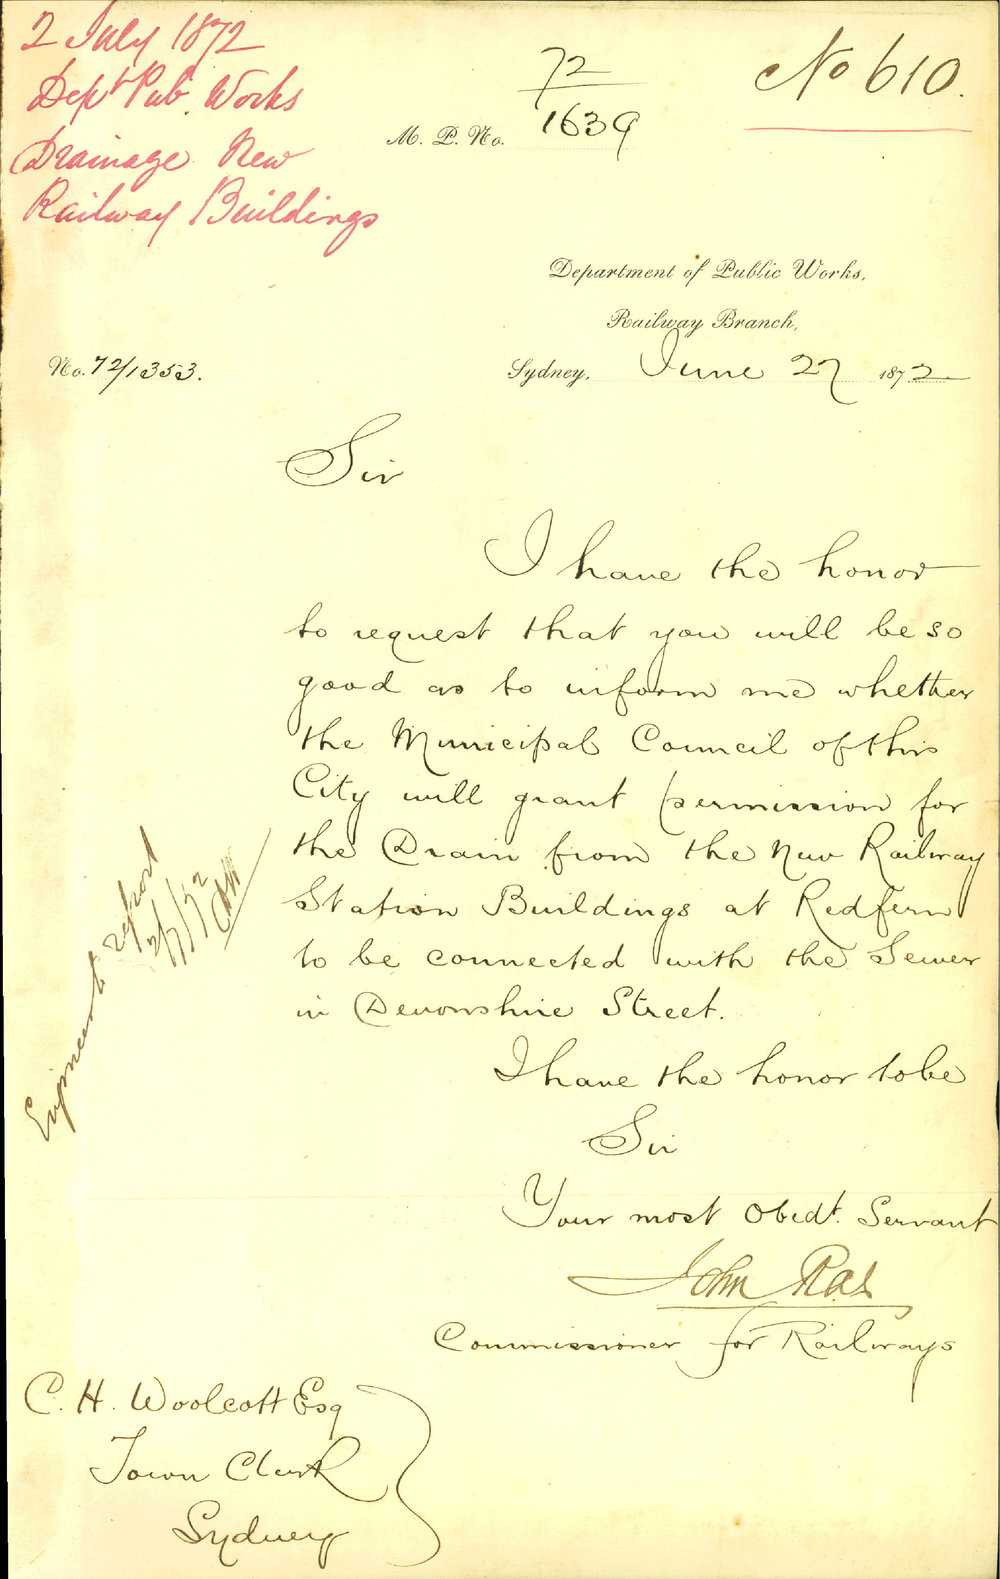 2 July 1872
Dept Pub. Works
Drainage New
Railway Buildings
No 610.
72
M. P. No. 1639
Department of Public Works,
Railway Branch,
No. 72/1353.
Sydney, June 27 1872
Sir
I have the honor
to request that you will be so
good as to inform me whether
the Municipal Council of this
City will grant permission for
the Drain from the New Railway
Station Buildings at Redfern
to be connected with the Sewer
in Devonshire Street.
I have the honor to be
Sir
Your most Obedt. Servant
John Rae
Commissioner for Railways
C. H. Woolcott Esq
Town Clerk
Sydney
Engineer to report
2/7/72
CHW